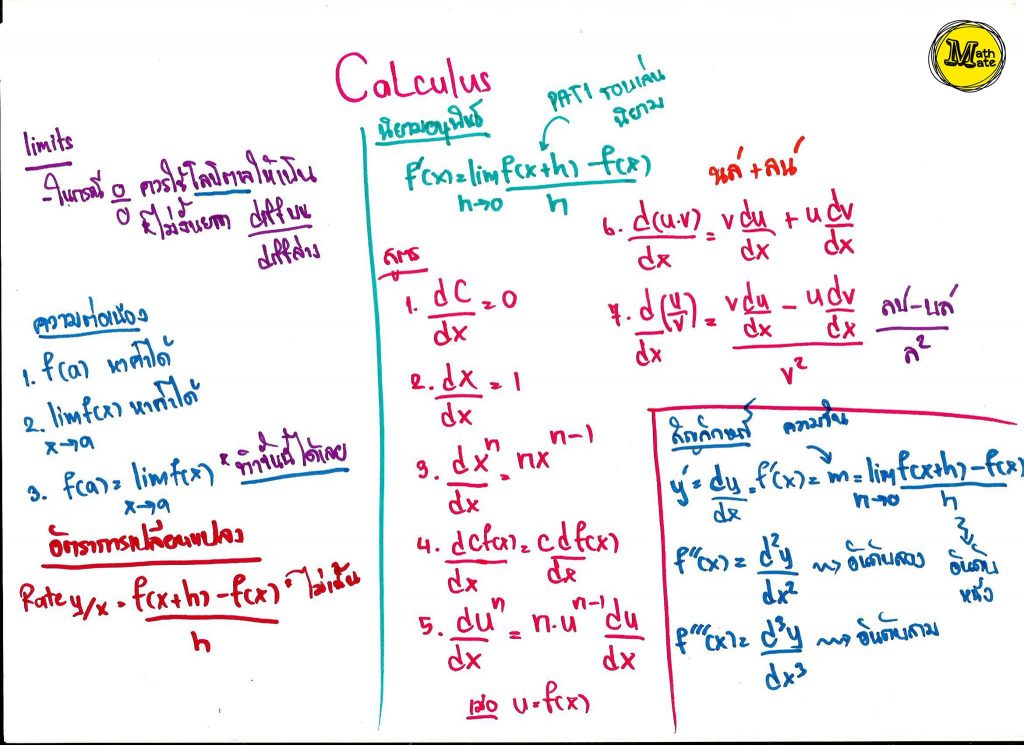 Math Mate
Calculus
limits
- ในกรณี 0/0 ควรใช้ โลปิตาล ให้เป็น
diffบน/diffล่าง
ความต่อเนื่อง
1. f(a) หาค่าได้
2. lim f(x) หาค่าได้
x→a
3. f(a) = lim f(x) * ทำขั้นนี้ได้เลย
x→a
อัตราการเปลี่ยนแปลง
Rate y/x = f(x+h) - f(x) / h * ไม่เติม
นิยามอนุพันธ์
PAT1 ชอบเล่น
นิยาม
f'(x) = lim f(x+h) - f(x) / h
h→0
สูตร
1. dC/dx = 0
2. dx/dx = 1
3. dxⁿ/dx = nxⁿ⁻¹
4. dCf(x)/dx = C df(x)/dx
5. duⁿ/dx = n·uⁿ⁻¹ du/dx
เมื่อ u = f(x)
6. d(u·v)/dx = v du/dx + u dv/dx
7. d/dx (u/v) = (v du/dx - u dv/dx) / v²
ล²
สัญลักษณ์ ความชัน
y' = dy/dx = f'(x) = m = lim f(x+h) - f(x) / h
h→0
อันดับ
หนึ่ง
f''(x) = d²y/dx² → อันดับสอง
f'''(x) = d³y/dx³ → อันดับสาม